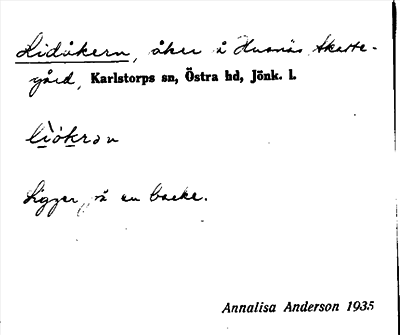 Lidåkern, åker å Husnäs Skatte-
gård, Karlstorps sn, Östra hd, Jönk. l.
Ligger på en backe.
Annalisa Anderson 1935